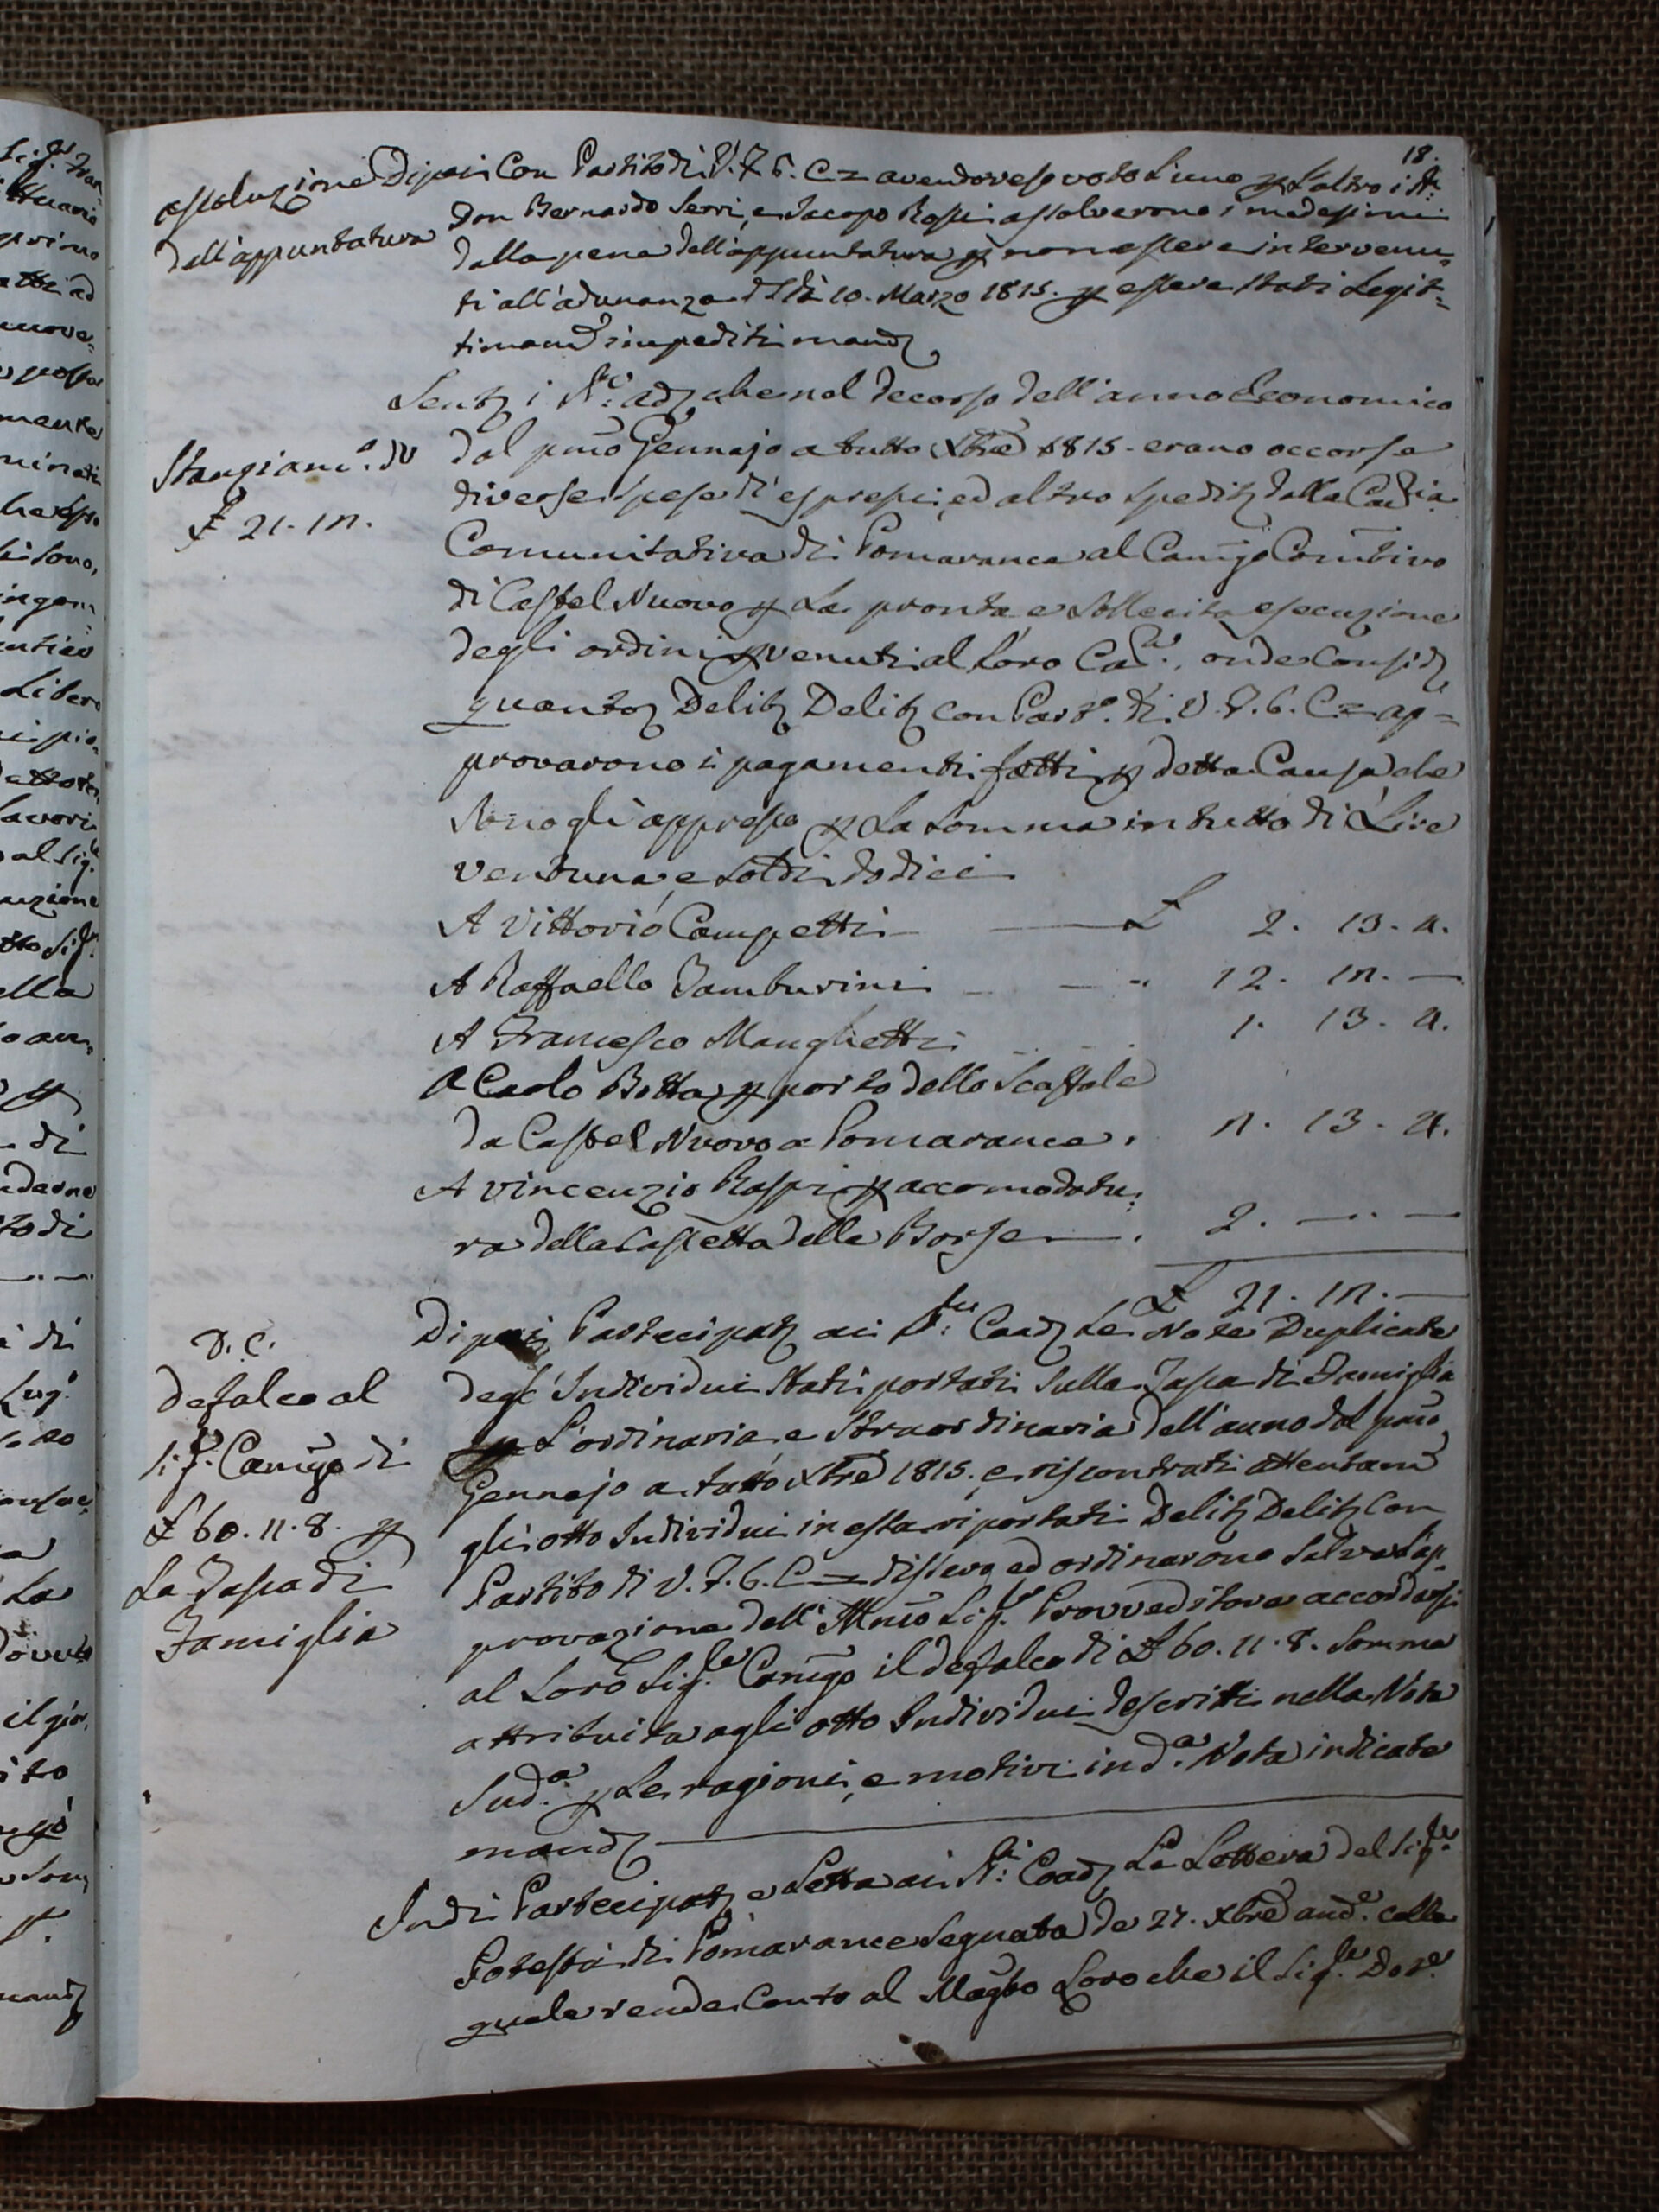 18.
assoluzione
dall'appuntatura
Dipoi Con Partito di V. 7 6. C = avendo reso voto L'uno p L'altro i SS:ri
Don Bernardo Serri, e Jacopo Rossi assolverono i medesimi
dalla pena dell'appuntatura p non essere intervenu=
ti all'adunanza del dì 10. Marzo 1815. p essere stati Legit=
timame impediti mand
Stanziam.o di
£ 21. 12.
Sentz i SS:ri adz che nel decorso dell'anno Economico
dal pmo Gennajo a tutto Xbre 1815 - erano occorse
diverse spese di espressi, ed altro spedite dalla Canria
Comunitativa di Pomarance al Camgo Comtivo
di Castel Nuovo p La pronta e sollecita esecuzione
degli ordini pvenuti al Loro Cane., onde Consid
quanto Delib Delib con Part.o di V. 7. 6. C = ap=
provarono i pagamenti fatti p detta Causa che
sono gli appresso p La somma in tutto di Lire
ventuna, e soldi dodici
A Vittorio Campetti — £ 2. 13. 4.
A Raffaello Tamburini — — " 12. 12. —
A Francesco Manghetti 1. 13. 4.
A Carlo Botta p porto dello Scaffale
da Castel Nuovo a Pomarance . 2. 13. 4.
A Vincenzio Rossi p accomodatu=
ra della Cassetta delle Borse — . 2. — . —
£ 21. 12. —
D. C.
defalco al
Sig.r Camgo di
£ 60. 11. 8. p
La Tassa di
Famiglia
Dipoi Partecipatz ai SS:ri Coadz Le Note Duplicate
degl'Individui Stati portati sulla Tassa di Famiglia
p L'ordinaria e Straordinaria dell'anno dal pmo
Gennajo a tutto Xbre 1815. e riscontrati attentame
gli otto Individui in essa riportati Delib Delib Con
Partito di V. 7. 6. C = dissero ed ordinarono salva L'ap=
provazione dell'Illmo Sig.r Provveditore accordarsi
al Loro Sig.r Camgo il defalco di £ 60. 11. 8. somma
attribuita agli otto Individui descritti nella Nota
Sud.a p Le ragioni, e motivi in d.a Nota indicate
mand —
Indi Partecipatz e Letta ai SS:ri Coadz La Lettera del Sig.r
Potestà di Pomarance segnata de 27. Xbre and.e colla
quale rende Conto al Magto Loro che il Sig.r Dot.e